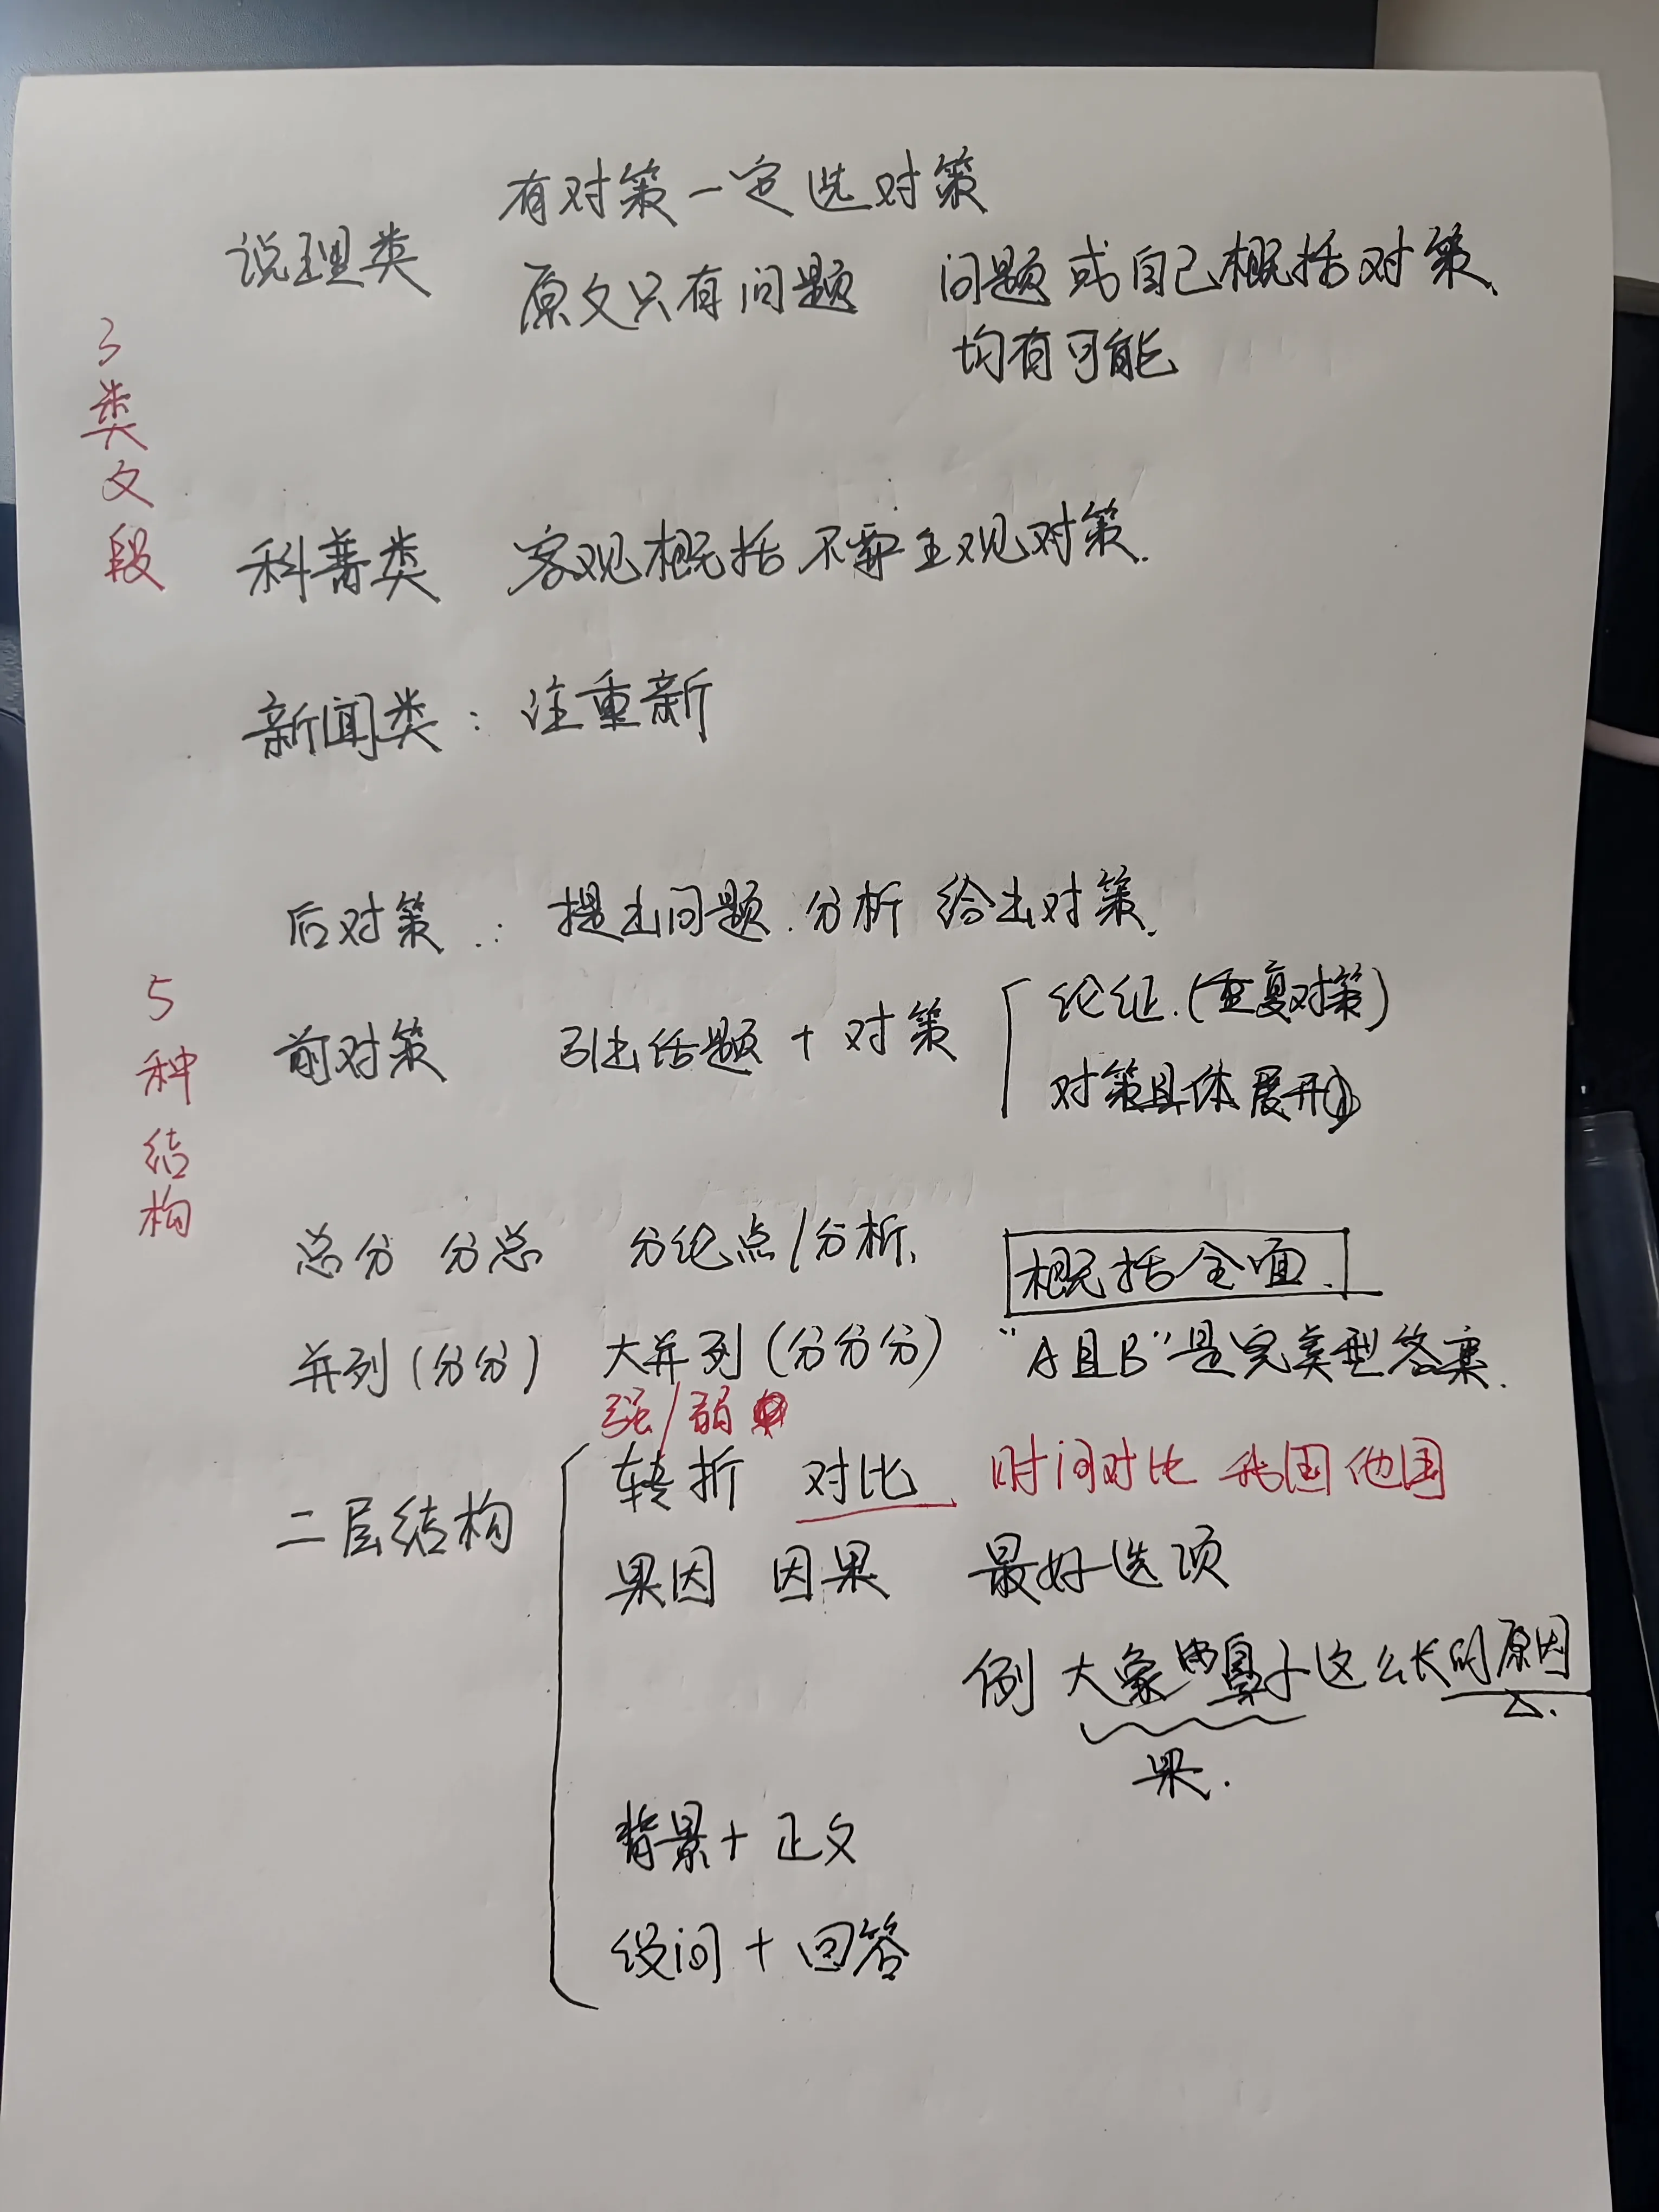 3类文段
说理类
有对策一定选对策
原文只有问题 问题或自己概括对策、
均有可能
科普类 客观概括 不要主观对策.
新闻类: 注重新
5种结构
后对策: 提出问题.分析 给出对策.
前对策 引出话题 + 对策
论证.(重复对策)
对策具体展开
总分 分总 分论点/分析. 概括全面.
并列(分分) 大并列(分分分) “A且B”是完美型答案.
强/弱
二层结构
转折 对比 时间对比 我国他国
果因 因果 最好选项
例 大象的鼻子这么长的原因
果.
背景+正文
设问+回答